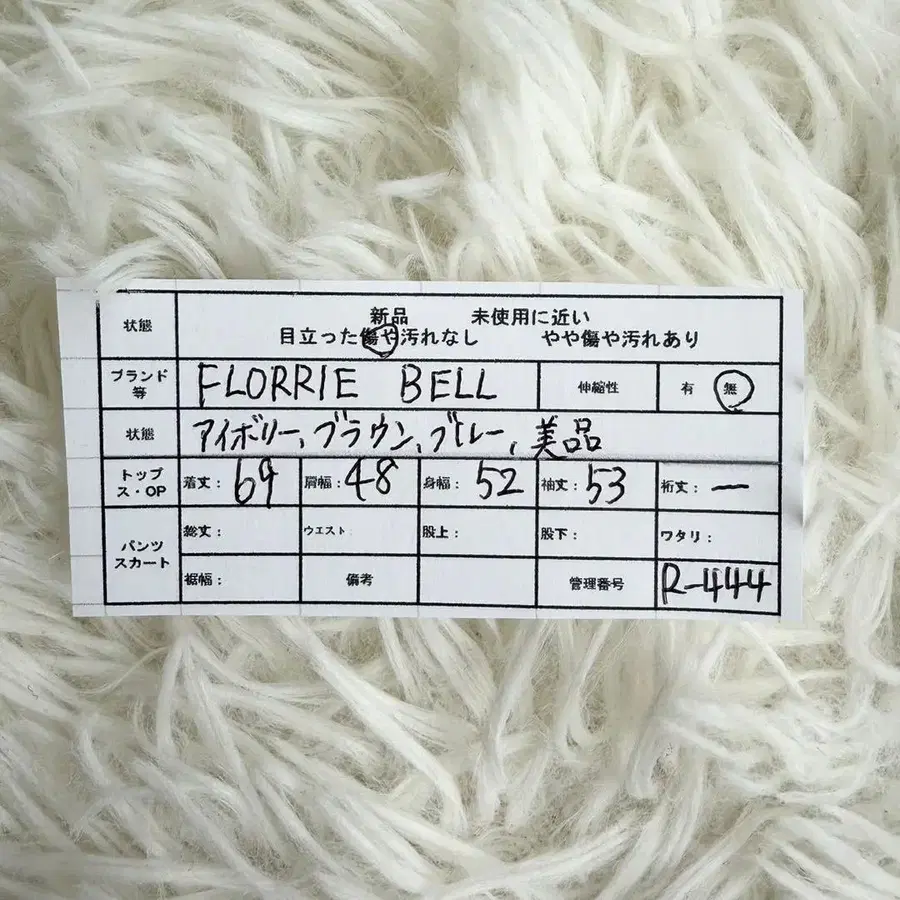 状態 新品 未使用に近い
目立った傷や汚れなし やや傷や汚れあり
ブランド等 FLORRIE BELL 伸縮性 有 無
状態 アイボリー、ブラウン、ブルー、美品
トップス・OP 着丈：69 肩幅：48 身幅：52 袖丈：53 裄丈：ー
パンツ スカート 総丈： ウエスト 股上： 股下： ワタリ：
裾幅： 備考 管理番号 R-444